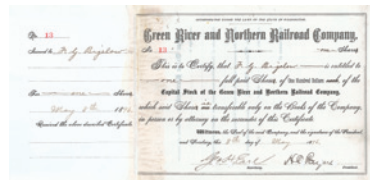 No. 13
Issued to F. G. Bigelow
one Share
May 8th
Received the above described Certificate
INCORPORATED UNDER THE LAWS OF THE STATE OF WASHINGTON
Green River and Northern Railroad Company.
No. 13
one Share
This is to Certify, that F. G. Bigelow is entitled to
one full paid Share, of One Hundred Dollars each, of the
Capital Stock of the Green River and Northern Railroad Company,
which said Share is transferable only on the Books of the Company,
in person or by attorney on the surrender of this Certificate.
Witness, the Seal of the said Company, and the signatures of the President,
and Secretary, this 8th day of May
Secretary
President